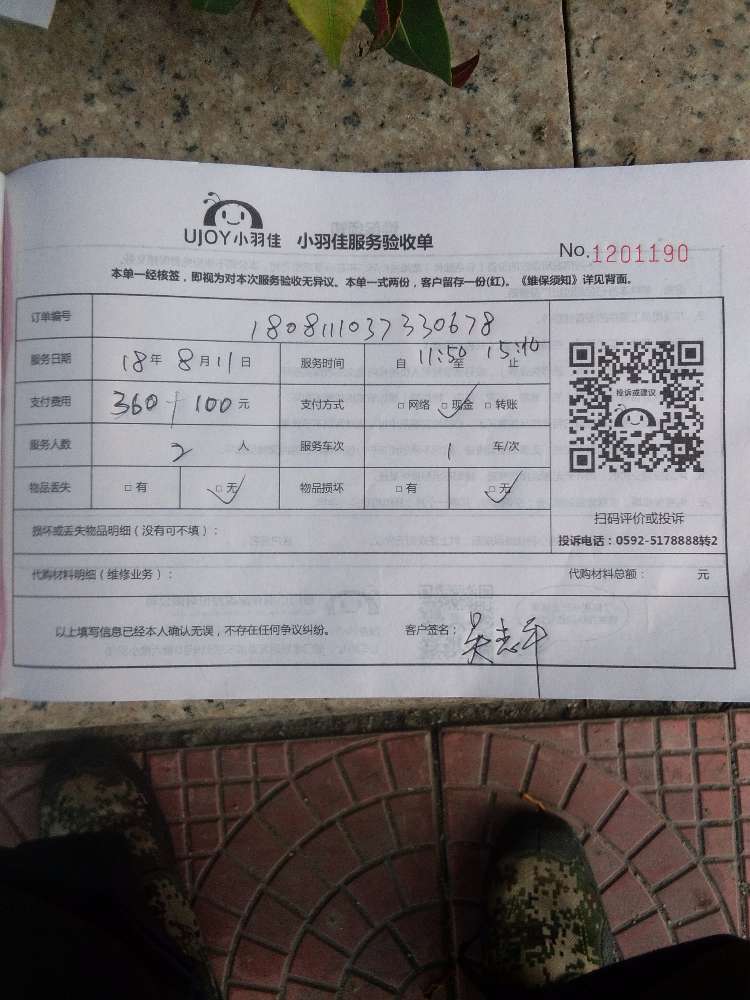 UJOY小羽佳 小羽佳服务验收单
No.1201190
本单一经核签，即视为对本次服务验收无异议。本单一式两份，客户留存一份(红)。《维保须知》详见背面。
订单编号 180811103733067 8
服务日期 18年 8月11日 服务时间 自 11:50 至 15:10 止
支付费用 360+100元 支付方式 □网络 □现金 □转账
投诉或建议
服务人数 2 人 服务车次 1 车/次
物品丢失 □有 □无 物品损坏 □有 □无
扫码评价或投诉
损坏或丢失物品明细（没有可不填）：
投诉电话：0592-5178888转2
代购材料明细（维修业务）： 代购材料总额： 元
以上填写信息已经本人确认无误，不存在任何争议纠纷。 客户签名：吴志平